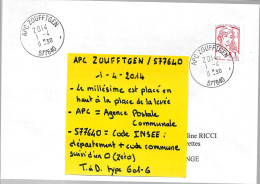 APC ZOUFFTGEN
2014
1 - 4
577640
APC ZOUFFTGEN
2014
577640
APC ZOUFFTGEN / 577640
-1-4-2014
- Le millésime est placé en
haut à la place de la levée
- APC = Agence Postale
Communale
- 577640 = Code INSEE :
département + code commune
suivi d'un 0 (zéro)
T.à D. type
ine RICCI
ettes
NGE